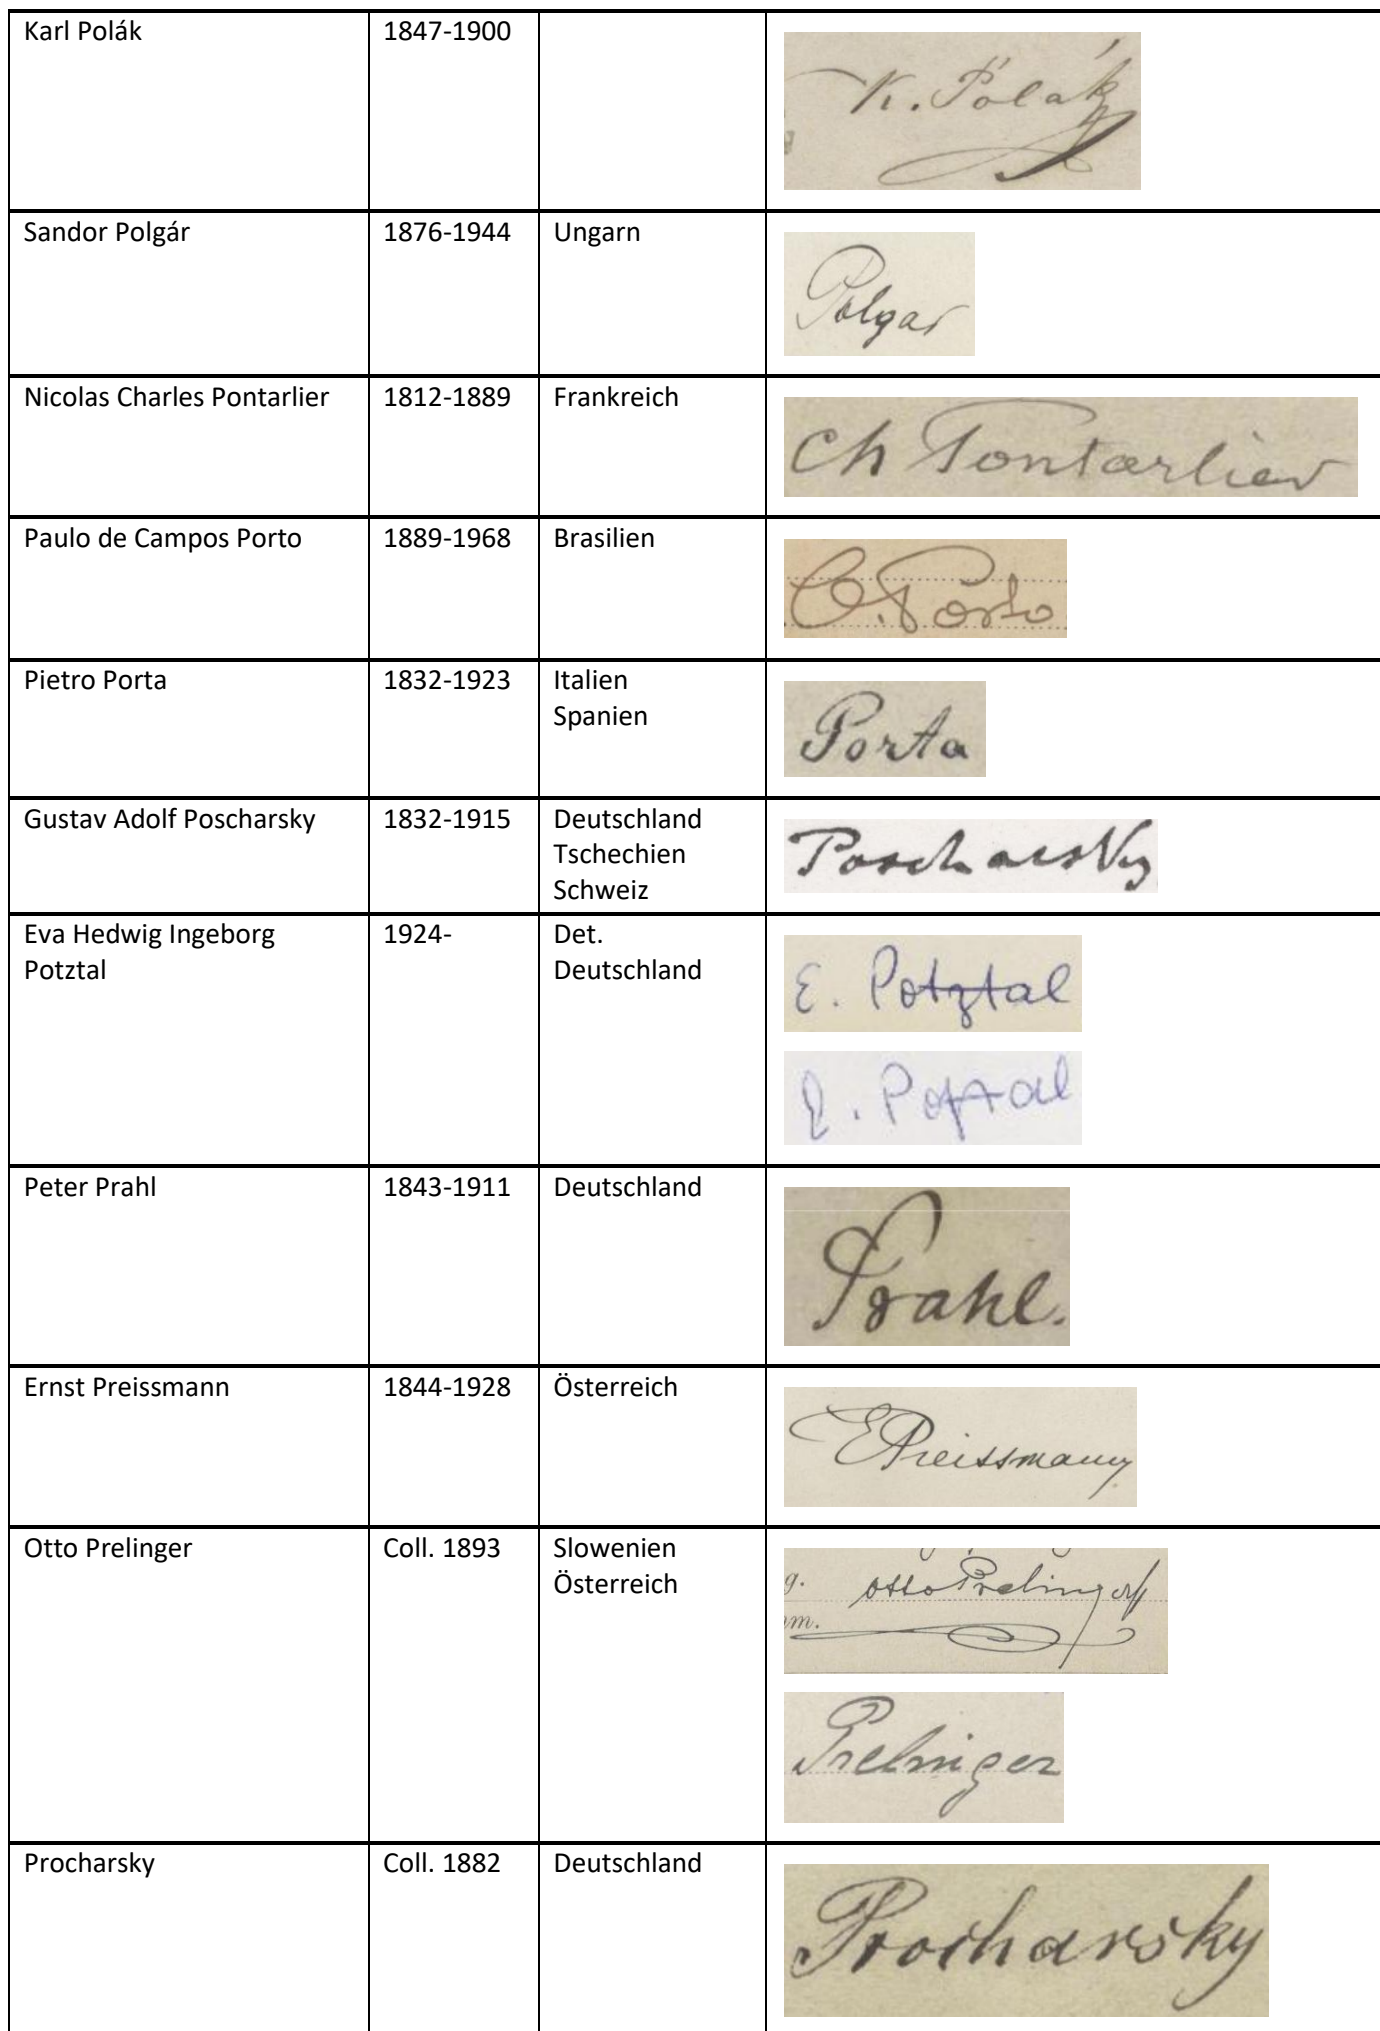 Karl Polák 1847-1900
K. Polák
Sandor Polgár 1876-1944 Ungarn
Polgar
Nicolas Charles Pontarlier 1812-1889 Frankreich
Ch Pontarlier
Paulo de Campos Porto 1889-1968 Brasilien
C. Porto
Pietro Porta 1832-1923 Italien
Spanien
Porta
Gustav Adolf Poscharsky 1832-1915 Deutschland
Tschechien
Schweiz
Poscharsky
Eva Hedwig Ingeborg 1924- Det.
Potztal Deutschland
E. Potztal
E. Potztal
Peter Prahl 1843-1911 Deutschland
Prahl.
Ernst Preissmann 1844-1928 Österreich
E Preissmann
Otto Prelinger Coll. 1893 Slowenien
Österreich
g. Otto Prelinger
m.
Prelinger
Procharsky Coll. 1882 Deutschland
Procharsky